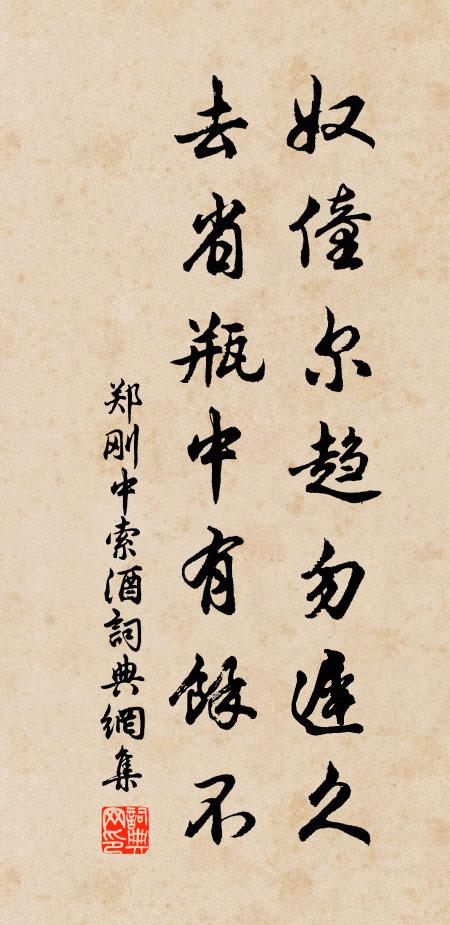 奴僮尔趋勿遲久
去省瓶中有餘不
郑刚中索酒詞典網集
詞典网印